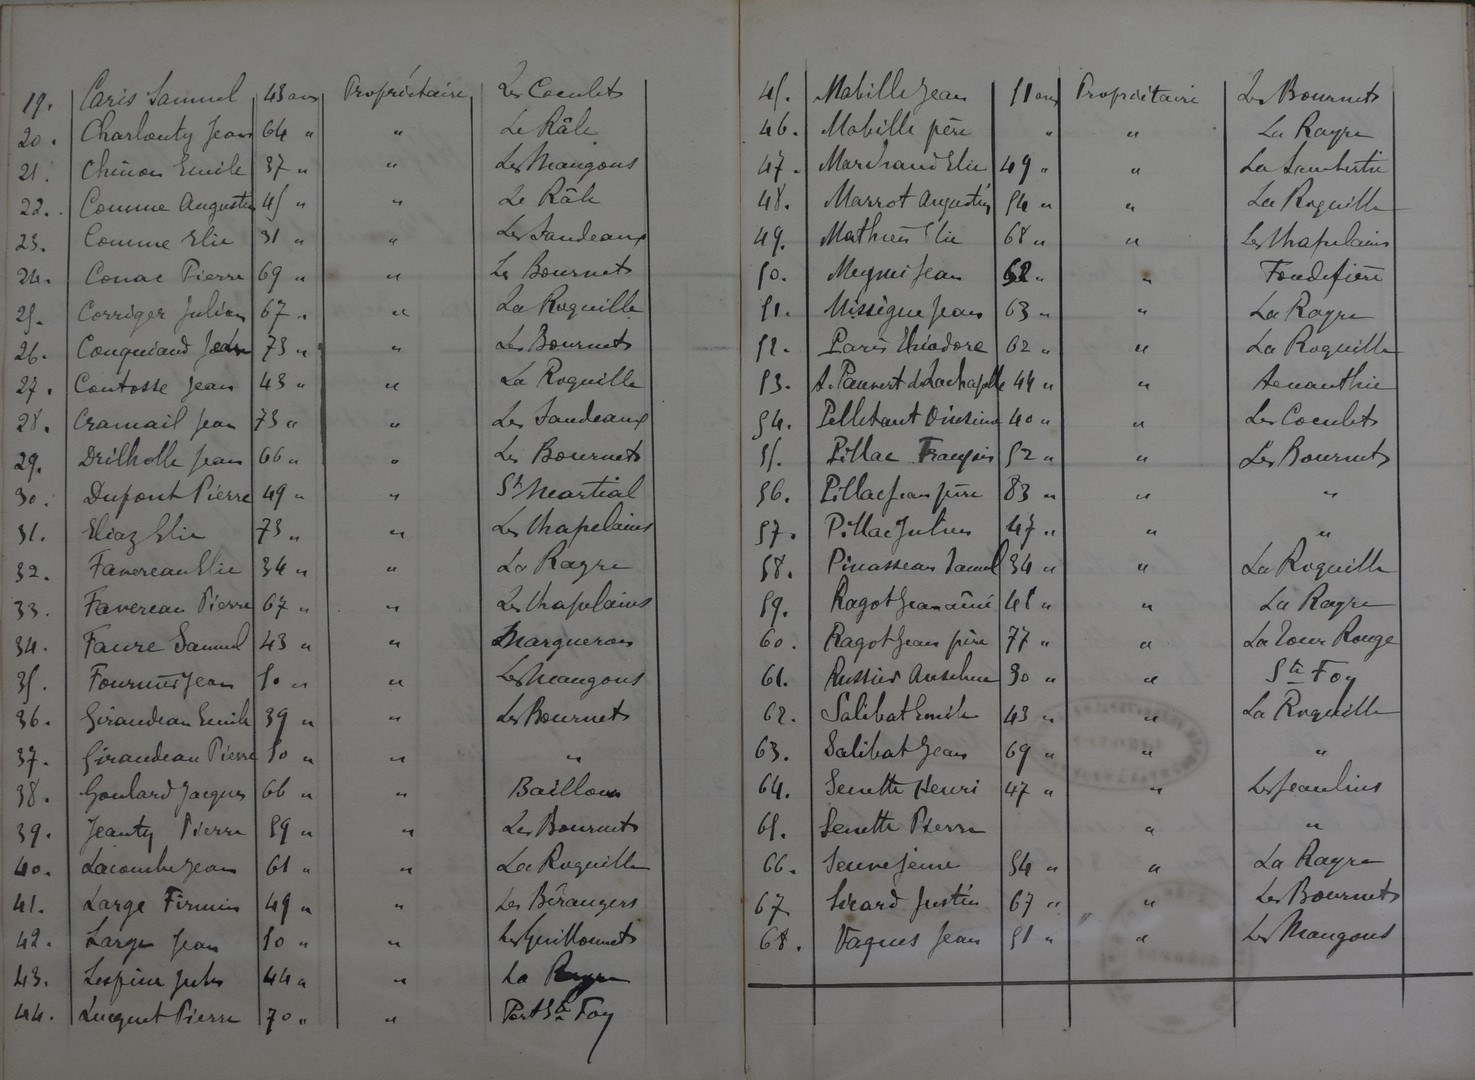 19. Caris Samuel 43 ans Propriétaire Les Coculets
20. Charlouty Jean 64 " " Le Râle
21. Chinon Emile 37 " " Les Mangons
22. Comme Augustin 45 " " Le Râle
23. Comme Elie 31 " " Les Jandeaux
24. Conac Pierre 69 " " Les Bournets
25. Corriger Julien 67 " " La Roquille
26. Couquiaud 73 " " Les Bournets
27. Contosse Jean 43 " " La Roquille
28. Cramail Jean 73 " " Les Jandeaux
29. Drilholle Jean 66 " " Les Bournets
30. Dupont Pierre 49 " " St Martial
31. Eliaz Elie 73 " " Les Chapelains
32. Favereau Elie 34 " " La Rayre
33. Favereau Pierre 67 " " Les Chapelains
34. Faure Samuel 43 " " Margueron
35. Fournier Jean 50 " " Les Mangons
36. Giraudeau Emile 39 " " Les Bournets
37. Giraudeau Pierre 50 " " "
38. Goulard Jacques 66 " " Baillou
39. Jeanty Pierre 59 " " Les Bournets
40. Lacombe Jean 61 " " La Roquille
41. Large Firmin 49 " " Les Bérangers
42. Large Jean 50 " " Les Guillonnets
43. Lespine Jules 44 " " La Rayre
44. Lucquet Pierre 70 " " Port Ste Foy
45. Mabille Jean 51 ans Propriétaire Les Bournets
46. Mabille père " " La Rayre
47. Marchand Elie 49 " " La Lambertie
48. Marrot Augustin 54 " " La Roquille
49. Mathieu Elie 68 " " Les Chapelains
50. Jean " " Fondefière
51. Missègue Jean 63 " " La Rayre
52. Paris Théodore 62 " " La Roquille
53. A. Pauvert de Lachapelle 44 " " Aenanthie
54. Pelletant 40 " " Les Coculets
55. Pillac François 52 " " Les Bournets
56. Pillac Jean père 83 " " "
57. Pillac Julien 47 " " "
58. Pinasseau Samuel 34 " " La Roquille
59. Ragot Jean aîné 41 " " La Rayre
60. Ragot Jean père 77 " " La Tour Rouge
61. Russier Anselme 30 " " Ste Foy
62. Salibat Emile 43 " " La Roquille
63. Salibat Jean 69 " " "
64. Senette Henri 47 " " Les Jeaulins
65. Senette Pierre " "
66. Jeune 54 " " La Rayre
67. Sicard Justin 67 " " Les Bournets
68. Vaques Jean 51 " " Les Mangons